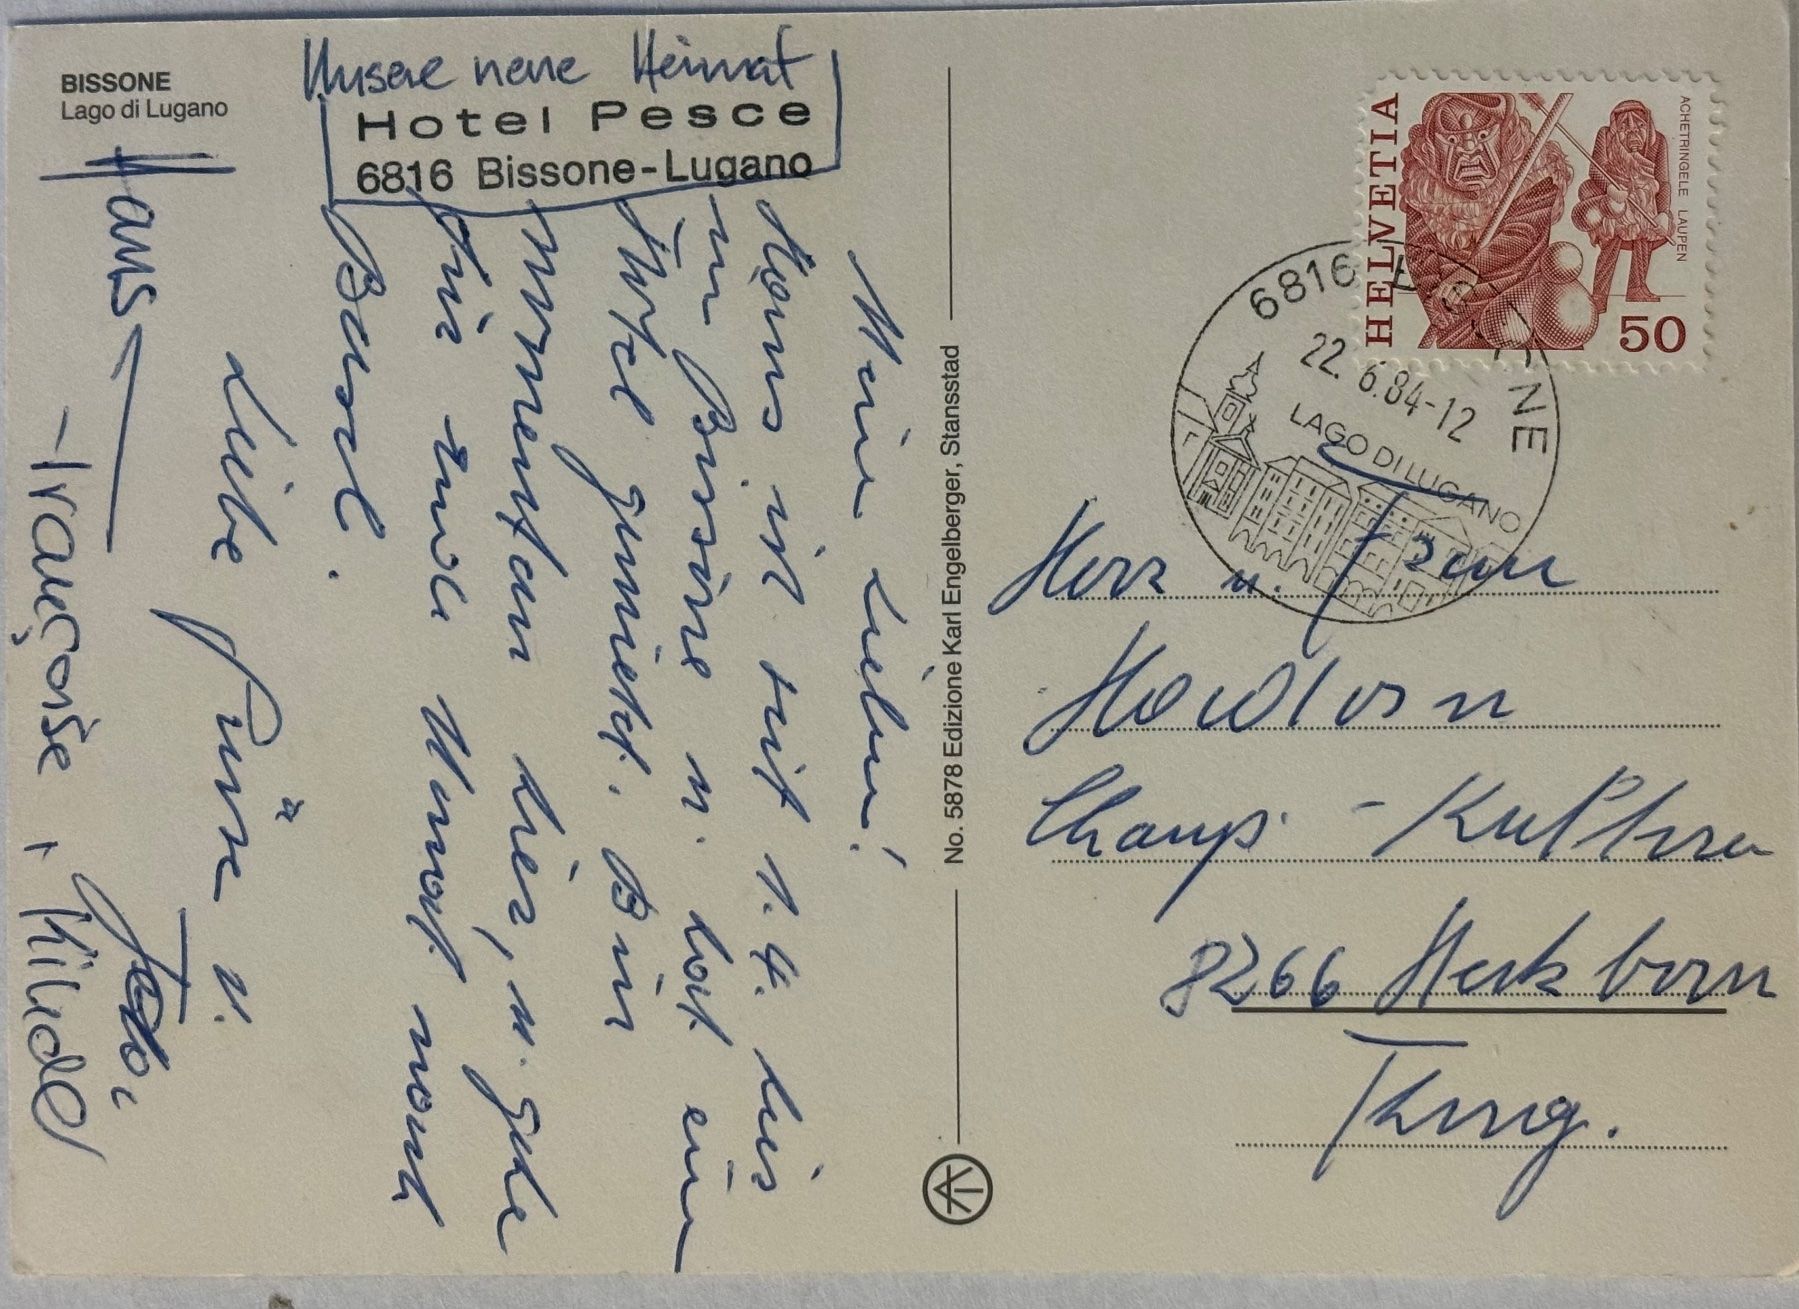 BISSONE
Lago di Lugano
Unsere neue Heimat
Hotel Pesce
6816 Bissone-Lugano
Meine Lieben!
Hans ist seit 1.4. hier
in Bissone u. hat ein
Hotel gemietet. Bin
momentan hier, u. gehe
für zwei Monat nach
Basel.
Liebe Grüsse v.
Hans
Françoise + Kinder
No. 5878 Edizione Karl Engelberger, Stansstad
HELVETIA
ACHETRINGELE LAUPEN
50
6816 BISSONE
22.6.84-12
LAGO DI LUGANO
Herr u. Frau
8266 Steckborn
Thurg.